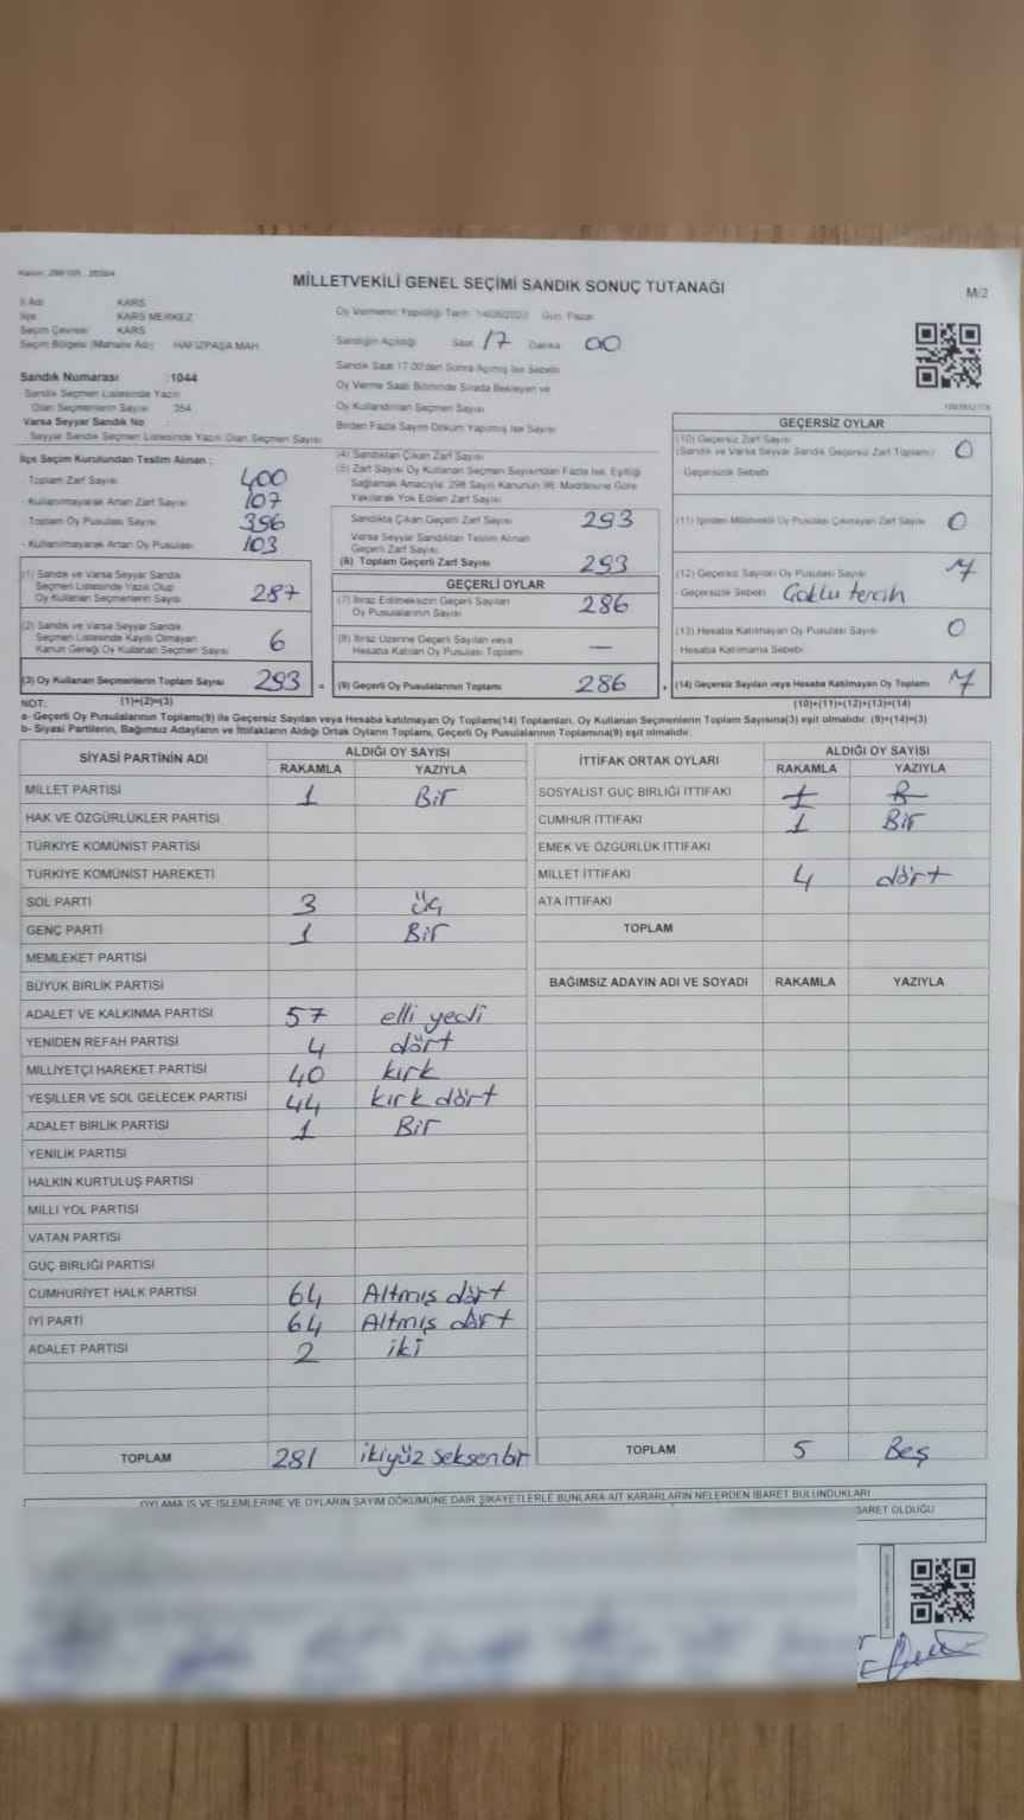 MİLLETVEKİLİ GENEL SEÇİMİ SANDIK SONUÇ TUTANAĞI
M/2
İl Adı KARS
İlçe KARS MERKEZ
Seçim Çevresi KARS
Seçim Bölgesi (Mahalle Adı) HAFIZPAŞA MAH
Sandık Numarası 1044
Sandık Seçmen Listesinde Yazılı
Olan Seçmenlerin Sayısı 354
Varsa Seyyar Sandık No
Seyyar Sandık Seçmen Listesinde Yazılı Olan Seçmen Sayısı
Oy Vermenin Yapıldığı Tarih 14/05/2023 Gün Pazar
Sandığın Açıldığı Saat 17 Dakika 00
Sandık Saat 17:00'den Sonra Açılmış İse Sebebi
Oy Verme Saati Bitiminde Sırada Bekleyen ve
Oy Kullandırılan Seçmen Sayısı
Birden Fazla Sayım Döküm Yapılmış İse Sayısı
İlçe Seçim Kurulundan Teslim Alınan :
Toplam Zarf Sayısı 400
- Kullanılmayarak Artan Zarf Sayısı 107
Toplam Oy Pusulası Sayısı 396
- Kullanılmayarak Artan Oy Pusulası 103
(1) Sandık ve Varsa Seyyar Sandık
Seçmen Listesinde Yazılı Olup
Oy Kullanan Seçmenlerin Sayısı 287
(2) Sandık ve Varsa Seyyar Sandık
Seçmen Listesinde Kayıtlı Olmayan
Kanun Gereği Oy Kullanan Seçmen Sayısı 6
(3) Oy Kullanan Seçmenlerin Toplam Sayısı 293 =
(1)+(2)=(3)
(4) Sandıktan Çıkan Zarf Sayısı
(5) Zarf Sayısı Oy Kullanan Seçmen Sayısından Fazla İse, Eşitliği
Sağlamak Amacıyla 298 Sayılı Kanunun 98. Maddesine Göre
Yakılarak Yok Edilen Zarf Sayısı
Sandıkta Çıkan Geçerli Zarf Sayısı 293
Varsa Seyyar Sandıktan Teslim Alınan
Geçerli Zarf Sayısı
(6) Toplam Geçerli Zarf Sayısı 293
GEÇERLİ OYLAR
(7) İtiraz Edilmeksizin Geçerli Sayılan
Oy Pusulalarının Sayısı 286
(8) İtiraz Üzerine Geçerli Sayılan veya
Hesaba Katılan Oy Pusulası Toplamı —
(9) Geçerli Oy Pusulalarının Toplamı 286 +
GEÇERSİZ OYLAR
(10) Geçersiz Zarf Sayısı
(Sandık ve Varsa Seyyar Sandık Geçersiz Zarf Toplamı) 0
Geçersizlik Sebebi
(11) İçinden Milletvekili Oy Pusulası Çıkmayan Zarf Sayısı 0
(12) Geçersiz Sayılan Oy Pusulası Sayısı 7
Geçersizlik Sebebi Çoklu tercih
(13) Hesaba Katılmayan Oy Pusulası Sayısı 0
Hesaba Katılmama Sebebi
(14) Geçersiz Sayılan veya Hesaba Katılmayan Oy Toplamı 7
(10)+(11)+(12)+(13)=(14)
NOT:
a- Geçerli Oy Pusulalarının Toplamı(9) ile Geçersiz Sayılan veya Hesaba katılmayan Oy Toplamı(14) Toplamları, Oy Kullanan Seçmenlerin Toplam Sayısına(3) eşit olmalıdır. (9)+(14)=(3)
b- Siyasi Partilerin, Bağımsız Adayların ve İttifakların Aldığı Ortak Oyların Toplamı, Geçerli Oy Pusulalarının Toplamına(9) eşit olmalıdır.
SİYASİ PARTİNİN ADI ALDIĞI OY SAYISI
RAKAMLA YAZIYLA
MİLLET PARTİSİ 1 Bir
HAK VE ÖZGÜRLÜKLER PARTİSİ
TÜRKİYE KOMÜNİST PARTİSİ
TÜRKİYE KOMÜNİST HAREKETİ
SOL PARTİ 3 üç
GENÇ PARTİ 1 Bir
MEMLEKET PARTİSİ
BÜYÜK BİRLİK PARTİSİ
ADALET VE KALKINMA PARTİSİ 57 elli yedi
YENİDEN REFAH PARTİSİ 4 dört
MİLLİYETÇİ HAREKET PARTİSİ 40 kırk
YEŞİLLER VE SOL GELECEK PARTİSİ 44 kırk dört
ADALET BİRLİK PARTİSİ 1 Bir
YENİLİK PARTİSİ
HALKIN KURTULUŞ PARTİSİ
MİLLİ YOL PARTİSİ
VATAN PARTİSİ
GÜÇ BİRLİĞİ PARTİSİ
CUMHURİYET HALK PARTİSİ 64 Altmış dört
İYİ PARTİ 64 Altmış dört
ADALET PARTİSİ 2 iki
TOPLAM 281 ikiyüz seksenbir
İTTİFAK ORTAK OYLARI ALDIĞI OY SAYISI
RAKAMLA YAZIYLA
SOSYALİST GÜÇ BİRLİĞİ İTTİFAKI
CUMHUR İTTİFAKI 1 Bir
EMEK VE ÖZGÜRLÜK İTTİFAKI
MİLLET İTTİFAKI 4 dört
ATA İTTİFAKI
TOPLAM
BAĞIMSIZ ADAYIN ADI VE SOYADI RAKAMLA YAZIYLA
TOPLAM 5 Beş
OYLAMA İŞ VE İŞLEMLERİNE VE OYLARIN SAYIM DÖKÜMÜNE DAİR ŞİKAYETLERLE BUNLARA AİT KARARLARIN NELERDEN İBARET BULUNDUKLARI
BARET OLDUĞU